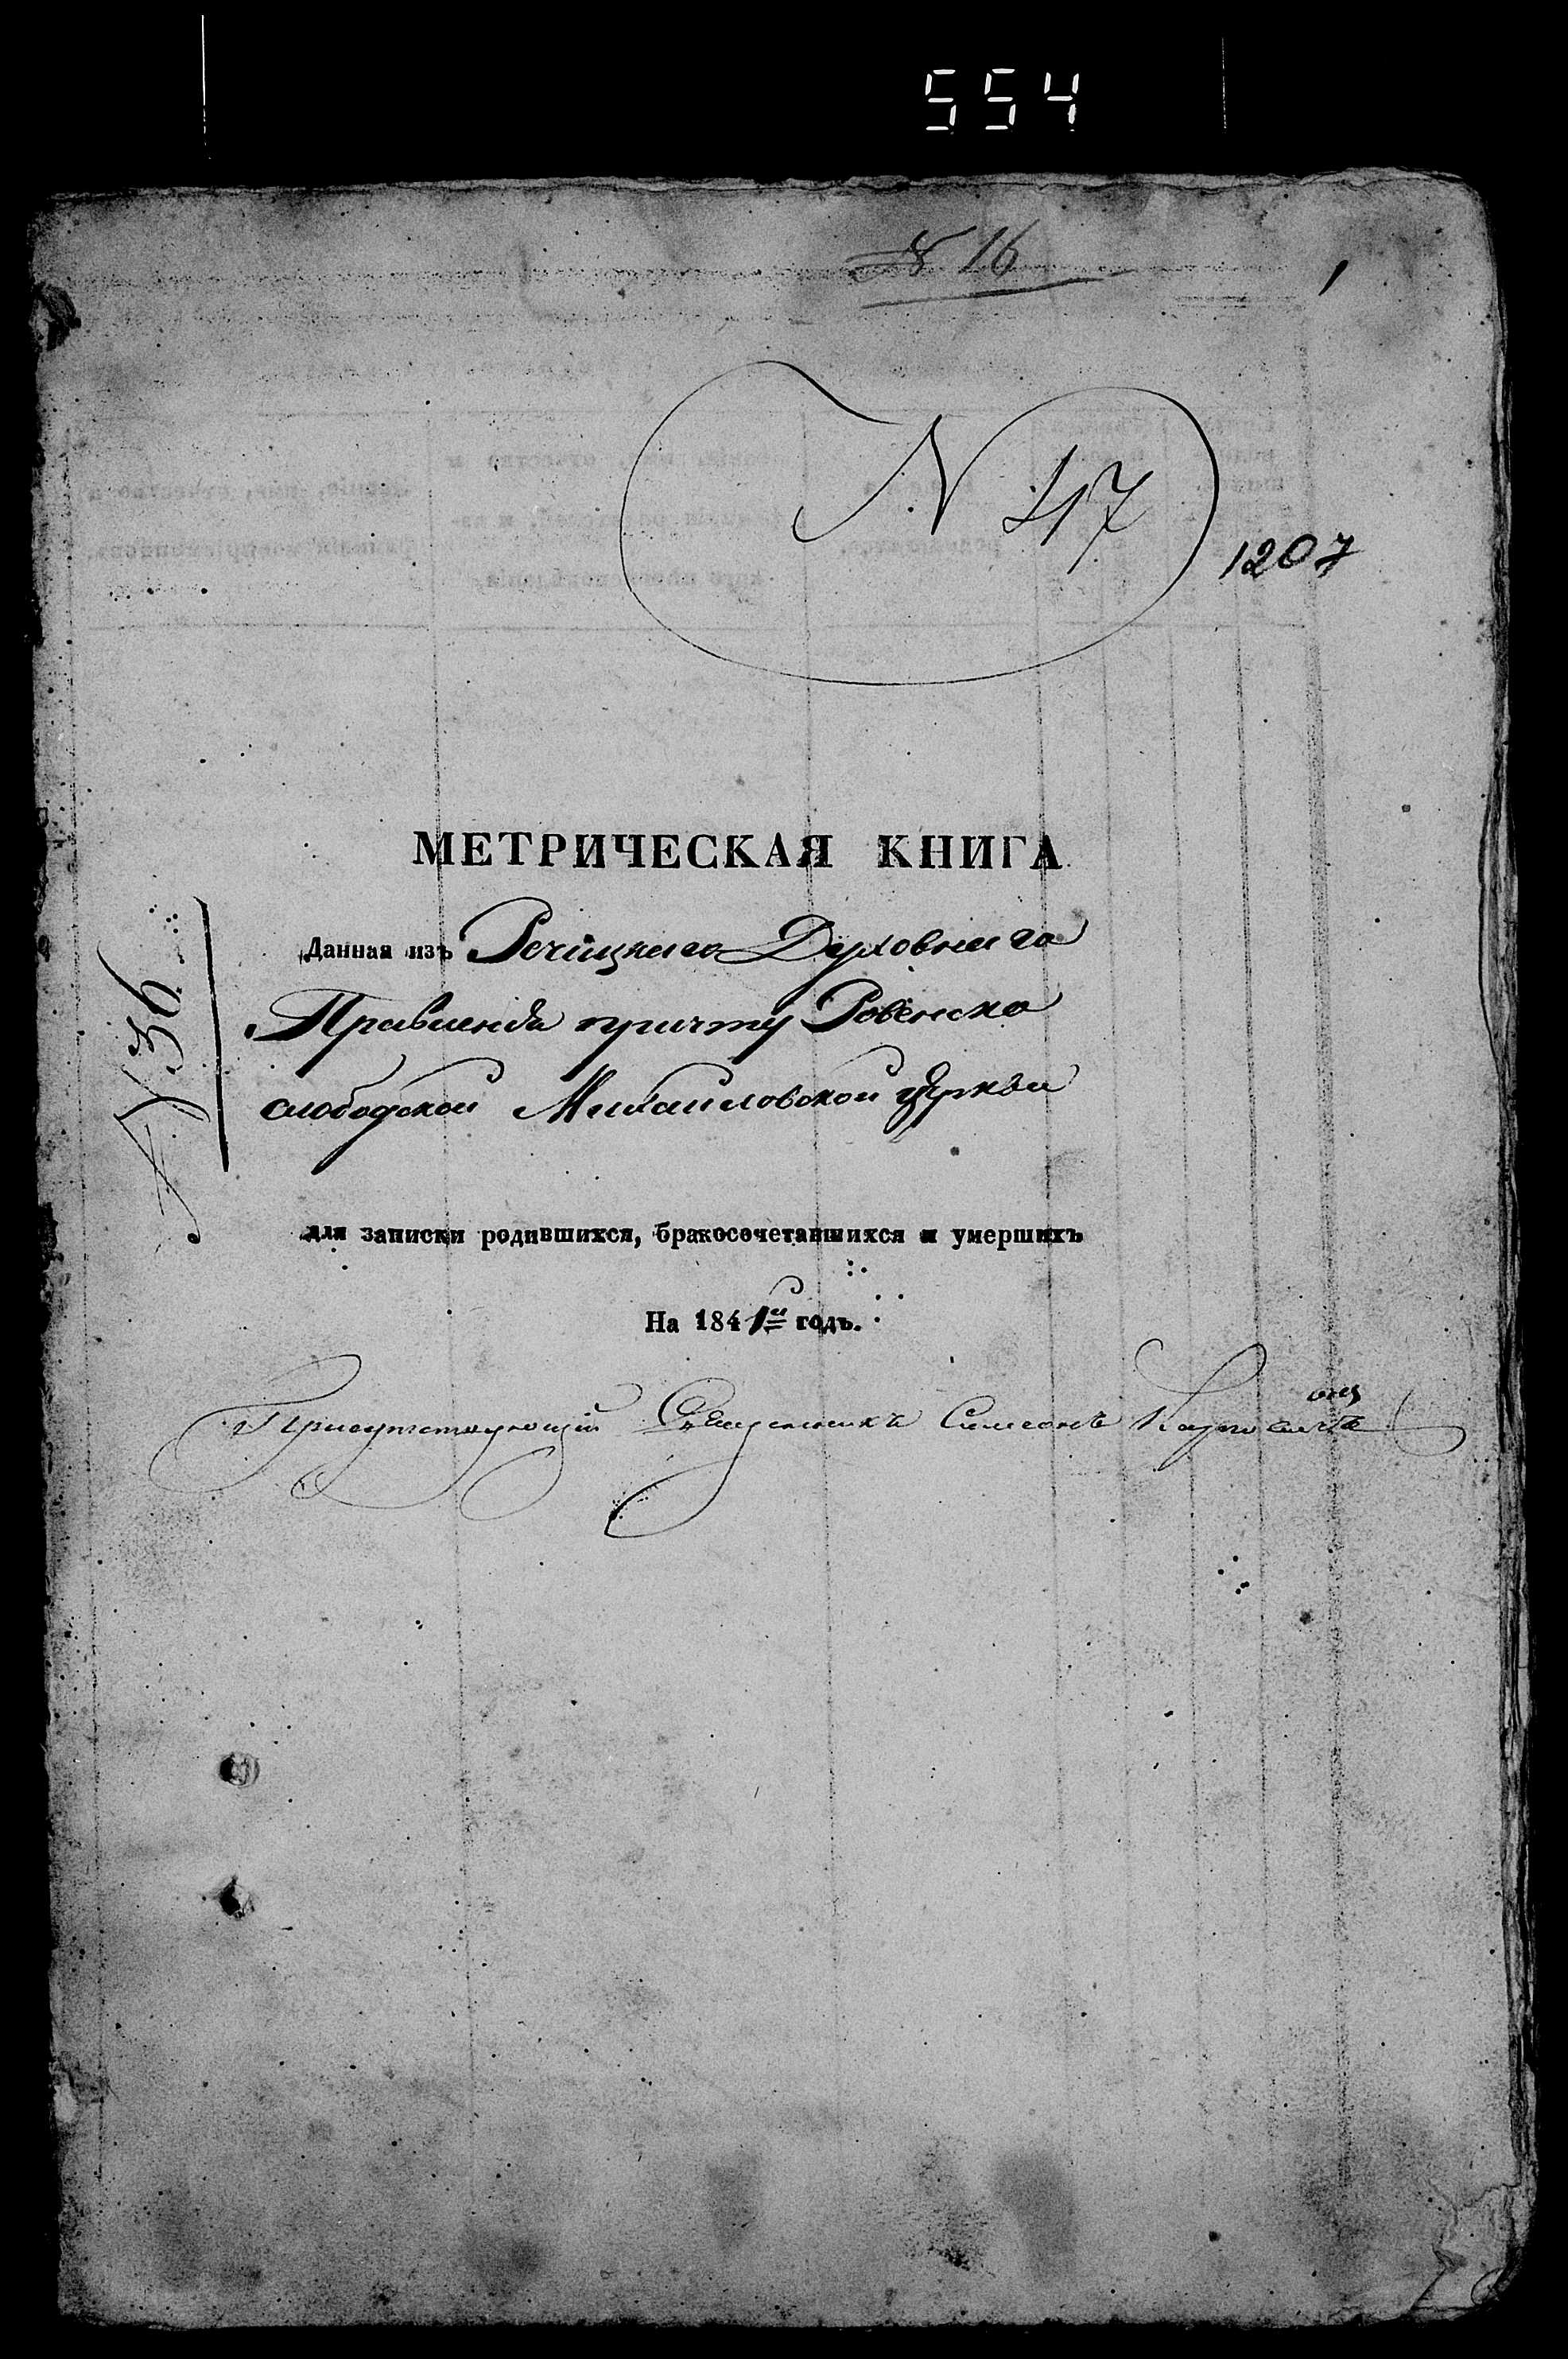 554
№ 16
1
N 47
1207
МЕТРИЧЕСКАЯ КНИГА
Данная изъ Речицкаго Духовнаго
Правленія причту Ровенско
слободской Михаиловской Церкви
№ 36
для записки родившихся, бракосочетавшихся и умершихъ
На 1841й годъ.
Присутствующій Священникъ Симеонъ